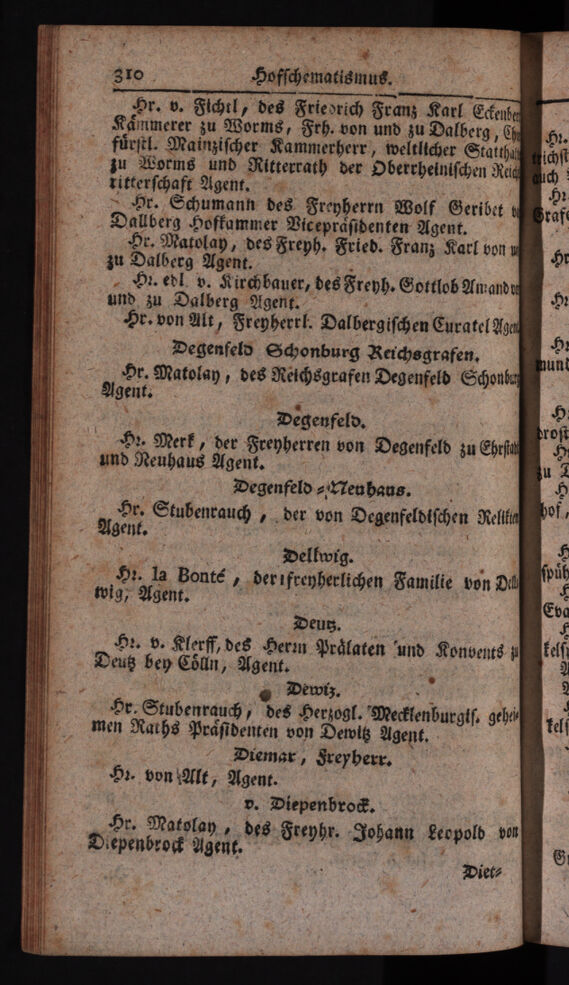 310 Hofschematismus.
Hr. v. Fichtl, des Friedrich Franz Karl Eckenber
Kämmerer zu Worms, Frh. von und zu Dalberg, Chu
fürstl. Mainzischer Kammerherr, weltlicher Statthal
zu Worms und Ritterrath der Oberrheinischen Reich
ritterschaft Agent.
Hr. Schumann des Freyherrn Wolf Geribet v
Dallberg Hofkammer Vicepräsidenten Agent.
Hr. Matolay, des Freyh. Fried. Franz Karl von u
zu Dalberg Agent.
Hr. edl v. Kirchbauer, des Freyh. Gottlob Amand v
und zu Dalberg Agent.
Hr. von Alt, Freyherrl. Dalbergischen Curatel Agen
Degenfeld Schonburg Reichsgrafen.
Hr. Matolay, des Reichsgrafen Degenfeld Schonburg
Agent.
Degenfeld.
Hr. Merk, der Freyherren von Degenfeld zu Ehrstadt
und Neuhaus Agent.
Degenfeld-Neuhaus.
Hr. Stubenrauch, der von Degenfeldischen Relikten
Agent.
Dellwig.
Hr. la Bonté, der freyherlichen Familie von Dell
wig, Agent.
Deutz.
Hr. v. Klerff, des Herrn Prälaten und Konvents z
Deutz bey Cölln, Agent.
Dewiz.
Hr. Stubenrauch, des Herzogl. Mecklenburgis. gehei-
men Raths Präsidenten von Dewitz Agent.
Diemar, Freyherr.
Hr. von Alt, Agent.
v. Diepenbrock.
Hr. Matolay, des Freyhr. Johann Leopold von
Diepenbrock Agent.
Diet-